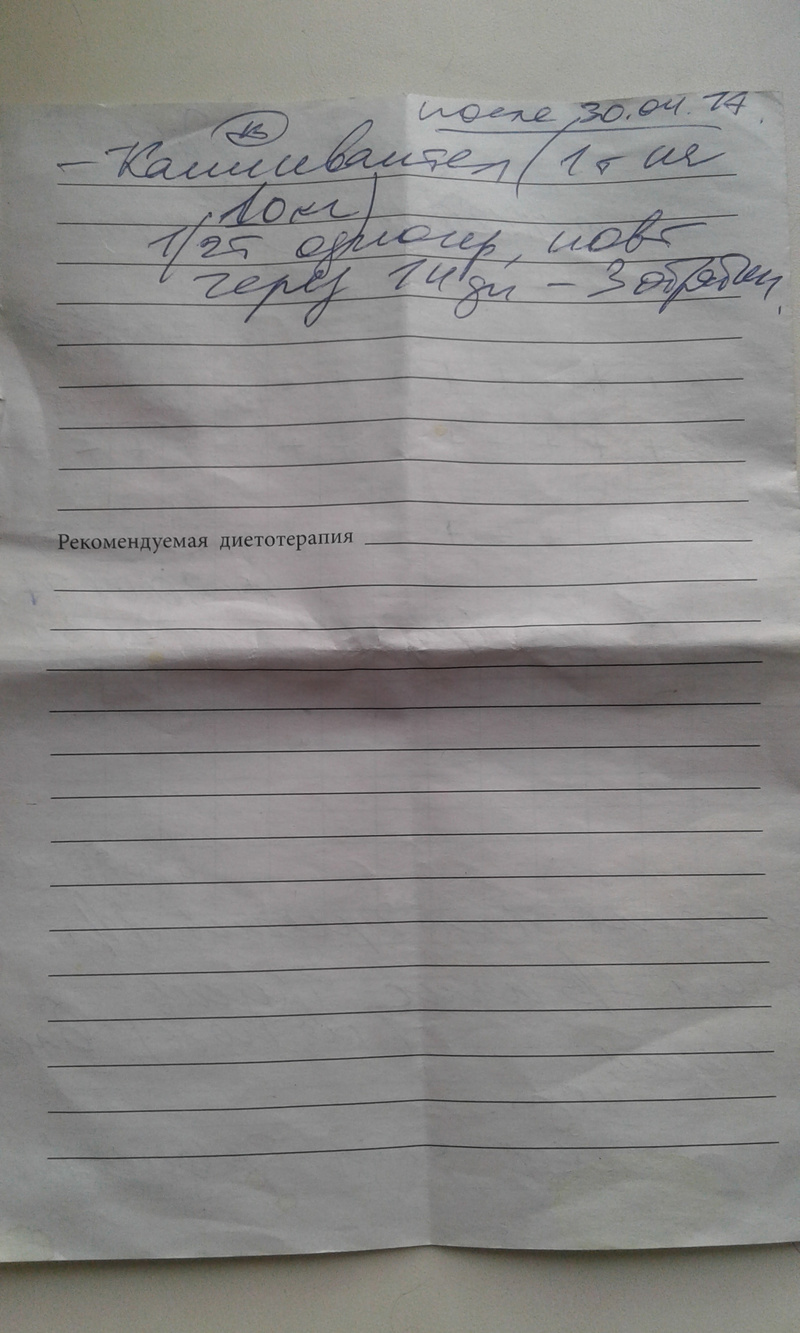 после 30.04.17.
- Каниквантел (1т на
10кг)
1/2т однокр, повт
через 14 дн - 3 обработки,
Рекомендуемая диетотерапия